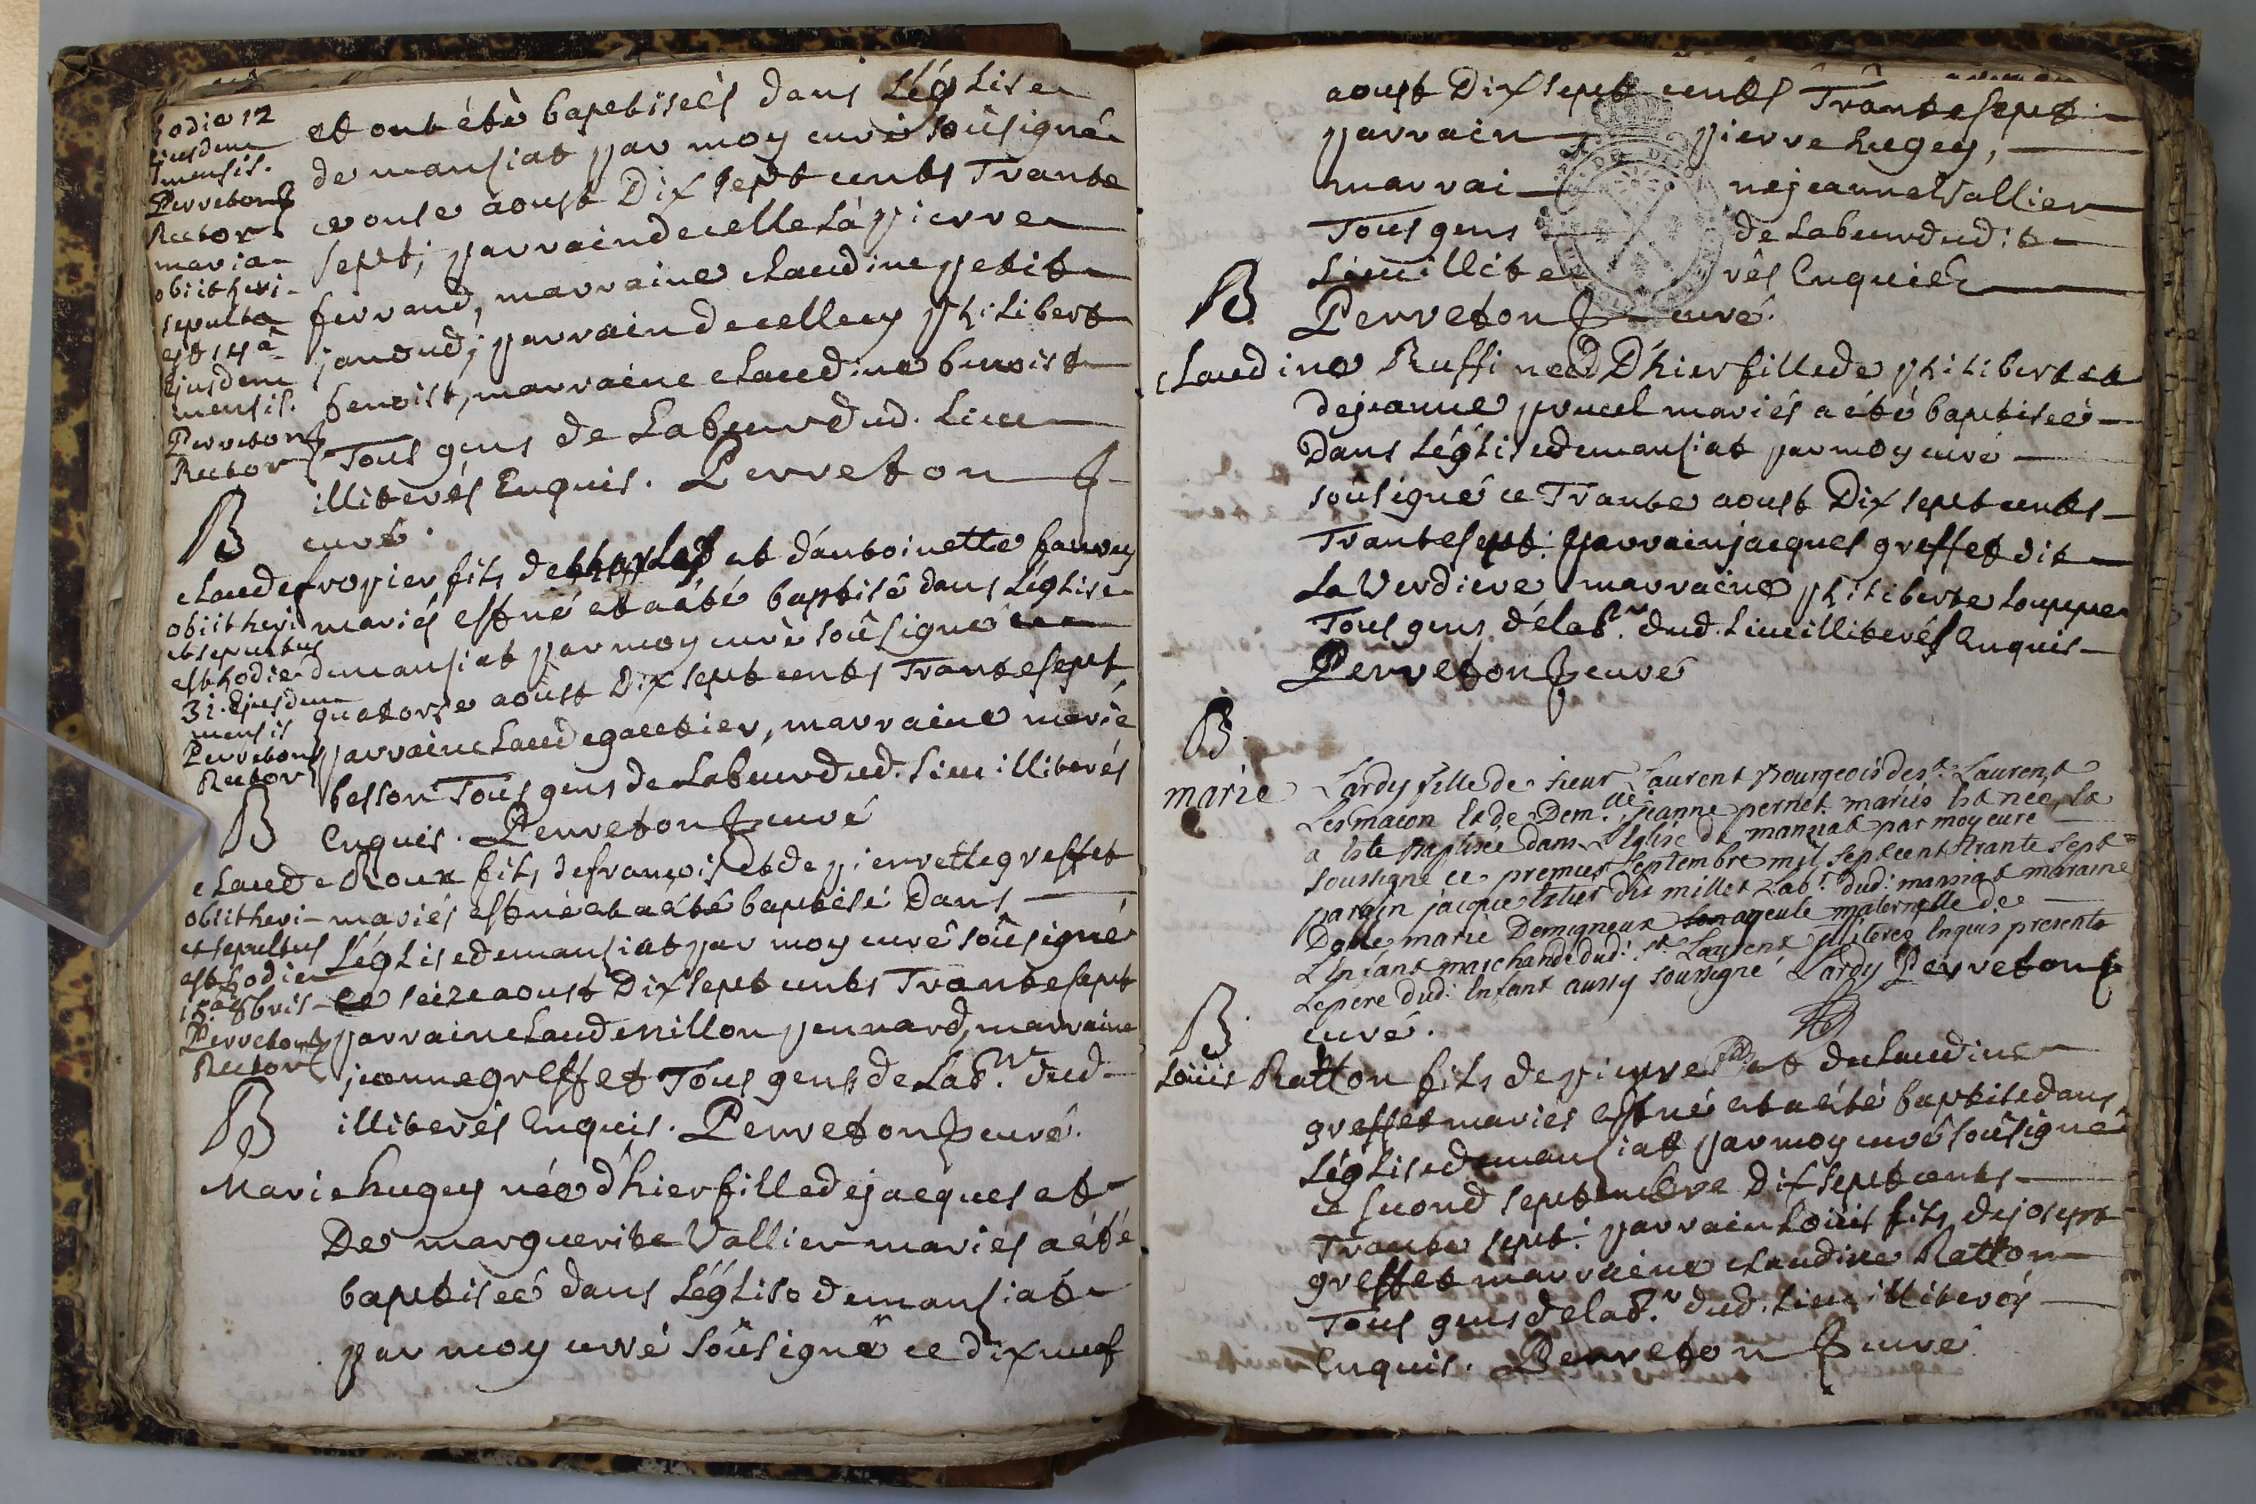 hodie 12
Ejusdem
mensis.
Perreton
Rector
maria
obiit heri
sepulta
est 14a
Ejusdem
mensis.
Perreton
Rector
et ont été baptiseés dans L'église
de mansiat par moy curé soûsigné
ce onse aoust Dix sept cents Trante
sept; parrain de celle Là pierre
ferrand, marraine claudine petit
jandud; parrain de celle cy philibert
benoist, marraine claudine benoist
Tous gens de Labeur dud. Lieu
illiterés Enquis. Perreton
curé.
B
claude fropier fils de charles et d'antoinette favre
mariés est né et a été baptisé dans L'église
de mansiat par moy curé soûsigné ce
quatorse aoust Dix sept cents Trante sept,
parrain claude gautier, marraine marie
besson Tous gens de Labeur dud. Lieu illiterés
Enquis. Perreton curé
obiit heri
et sepultus
est hodie
31. Ejusdem
mensis
Perreton
Rector
B
claude Roux fils de françois et de pierrette greffet
mariés est né et a été baptisé Dans
L'église de mansiat par moy curé soûsigné
ce seize aoust Dix sept cents Trante sept
parrain claude nillon pennard, marraine
jeanne greffet Tous gens de Lab.r dud.
illiterés Enquis. Perreton curé.
obiit heri
et sepultus
est hodie
15.a 8bris
Perreton
Rector
B
Marie hugey née d'hier fille de jacques et
De marguerite Vallier mariés a été
baptiseé dans L'église de mansiat
par moy curé soûsigné ce dix neuf
aoust Dix sept cents Trante sept
parrain pierre hugey,
marraine jeanne Vallier
Tous gens de Labeur dudit
Lieu illiterés Enquis
Perreton curé.
B.
claudine Ruffi née D'hier fille de philibert et
de jeanne prucel mariés a été baptiseé
Dans L'église de mansiat par moy curé
soûsigné ce Trante aoust Dix sept cents
Trante sept. parrain jacques greffet dit
La Verdiere marraine philiberte Louppe
Tous gens de lab.r dud. Lieu illiterés Enquis
Perreton curé
B.
marie Lardy fille de sieur Laurent Bourgeois de st. Laurent
Les macon Et de Dem.lle jeanne pernet mariés Est née Et
a Esté Baptisée dans L'Eglise de manziat par moy curé
soussigné ce premier septembre mil sept cent trante sept
parain jacque tatier dit millet Lab.r dud: manziat maraine
Dlle marie Domigneux son ayeule maternelle de
L'Enfant marchande dud: st. Laurent illiterés Enquis presents
Le pere dud: Enfant aussy soussigné Lardy Perreton
curé.
B.
Loüis Ratton fils de pierre et de claudine
greffet mariés est né et a été baptisé dans
L'église de mansiat par moy curé soûsigné
ce second septembre Dix sept cents
Trante sept. parrain Loüis fils de joseph
greffet marraine claudine Ratton
Tous gens de lab.r dud. Lieu illiterés
Enquis. Perreton curé